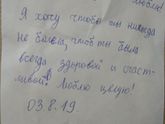 люблю!
Я хочу чтобы ты никогда
не болела, чтоб ты была
всегда здоровой и счаст-
ливой! Люблю целую!
03.8.19